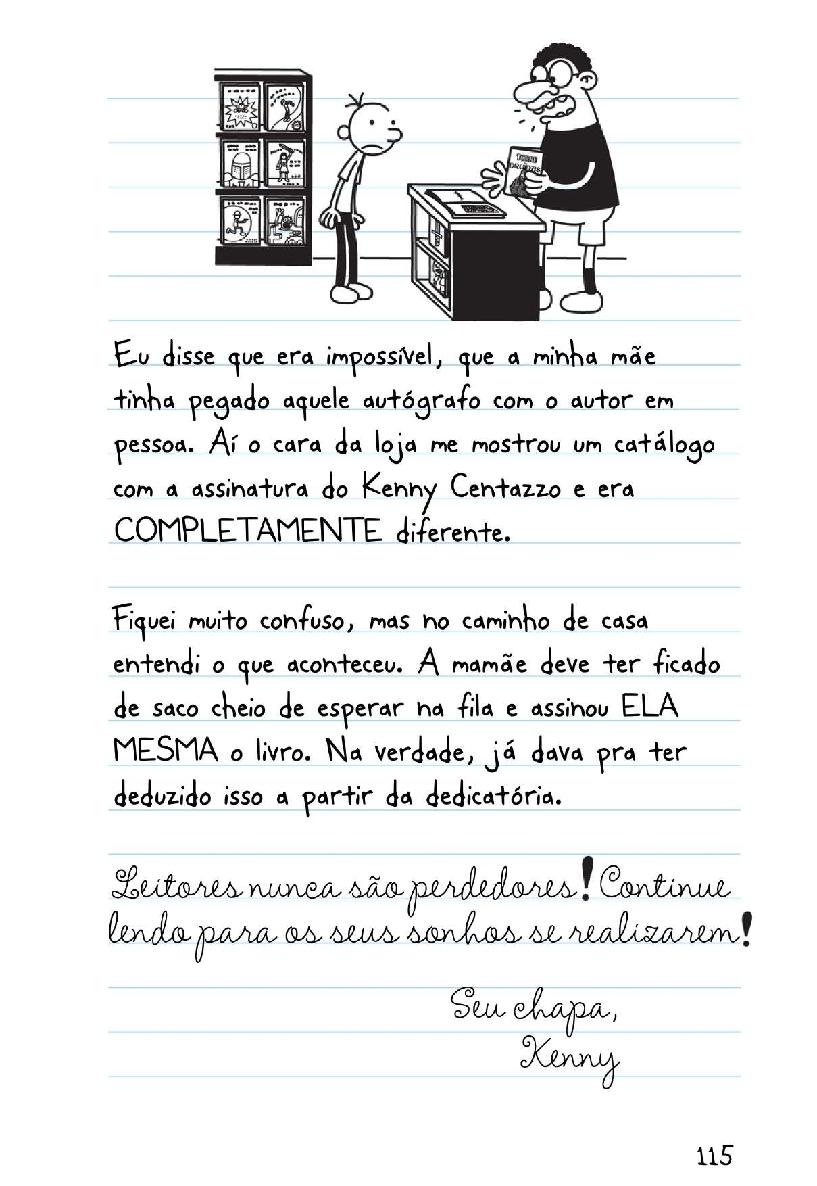 Eu disse que era impossível, que a minha mãe
tinha pegado aquele autógrafo com o autor em
pessoa. Aí o cara da loja me mostrou um catálogo
com a assinatura do Kenny Centazzo e era
COMPLETAMENTE diferente.
Fiquei muito confuso, mas no caminho de casa
entendi o que aconteceu. A mamãe deve ter ficado
de saco cheio de esperar na fila e assinou ELA
MESMA o livro. Na verdade, já dava pra ter
deduzido isso a partir da dedicatória.
Leitores nunca são perdedores! Continue
lendo para os seus sonhos se realizarem!
Seu chapa,
Kenny
115